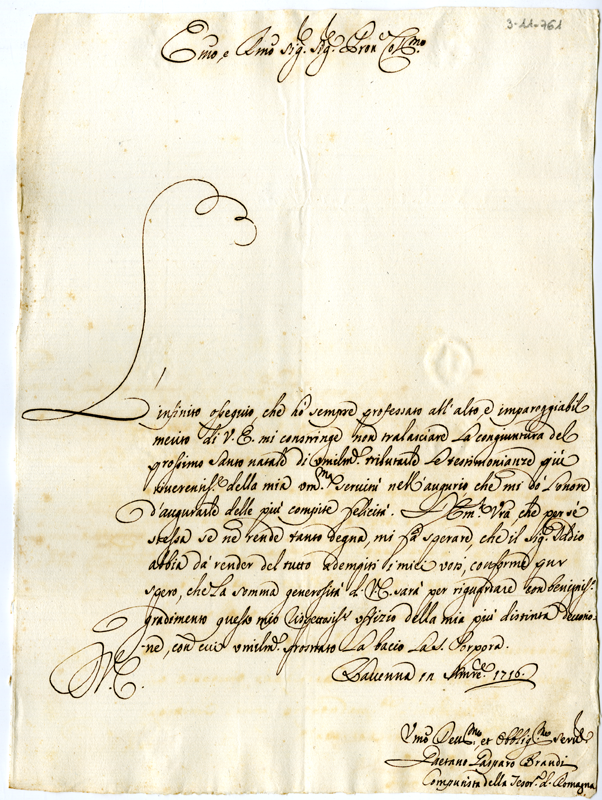 3-11-761
Emo, e Rmo Sig. Sig. Pron. Colmo
L'infinito ossequio, che hò sempre professato all'alto, e impareggiabil
merito di V. E. mi constringe non tralasciare la congiuntura del
prossimo Santo natale di umilmte. tributarle le testimonianze più
riverentisse. della mia umma. servitù nell'augurio che mi dò l'onore
d'augurarle delle più compite felicità. L'Emza. Vra, che per sè
stessa se nè rende tanto degna, mi fà sperare che il Sig. Iddio
abbia dà render del tutto adempiti i miei voti, conforme pur
spero, che la somma generosità d. V. E. sarà per riguardare con benigniss.
gradimento questo mio uffizio della mia più distinta devozio-
ne, con cui umilmte. prostrato la bacio la S. Porpora.
V. E.
Ravenna 1716.
Umo Devmo, et Obbligmo Servre
Gaetano Gasparo Brandi
Computista della Tesora. d. Romagna